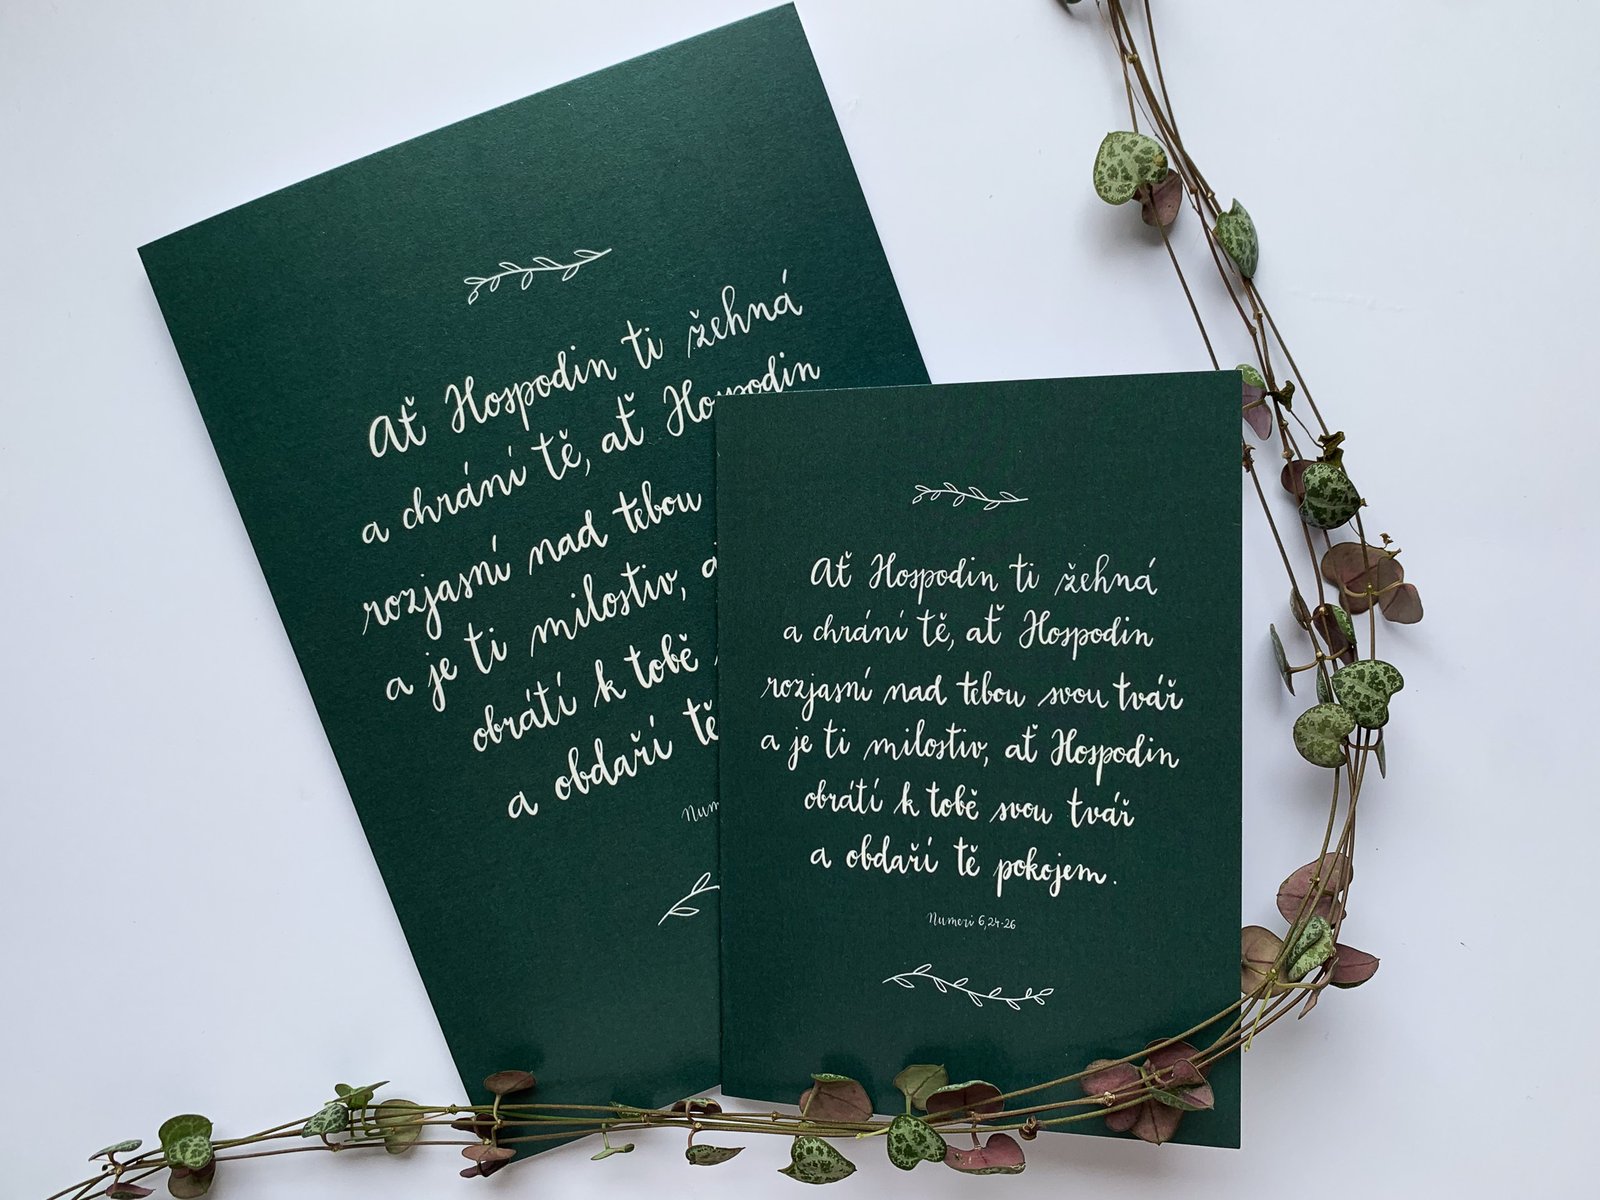 Ať Hospodin ti žehná
a chrání tě, ať Hospodin
rozjasní nad tebou
a je ti milostiv,
obrátí k tobě
a obdaří tě
Ať Hospodin ti žehná
a chrání tě, ať Hospodin
rozjasní nad tebou svou tvář
a je ti milostiv, ať Hospodin
obrátí k tobě svou tvář
a obdaří tě pokojem.
Numeri 6,24-26